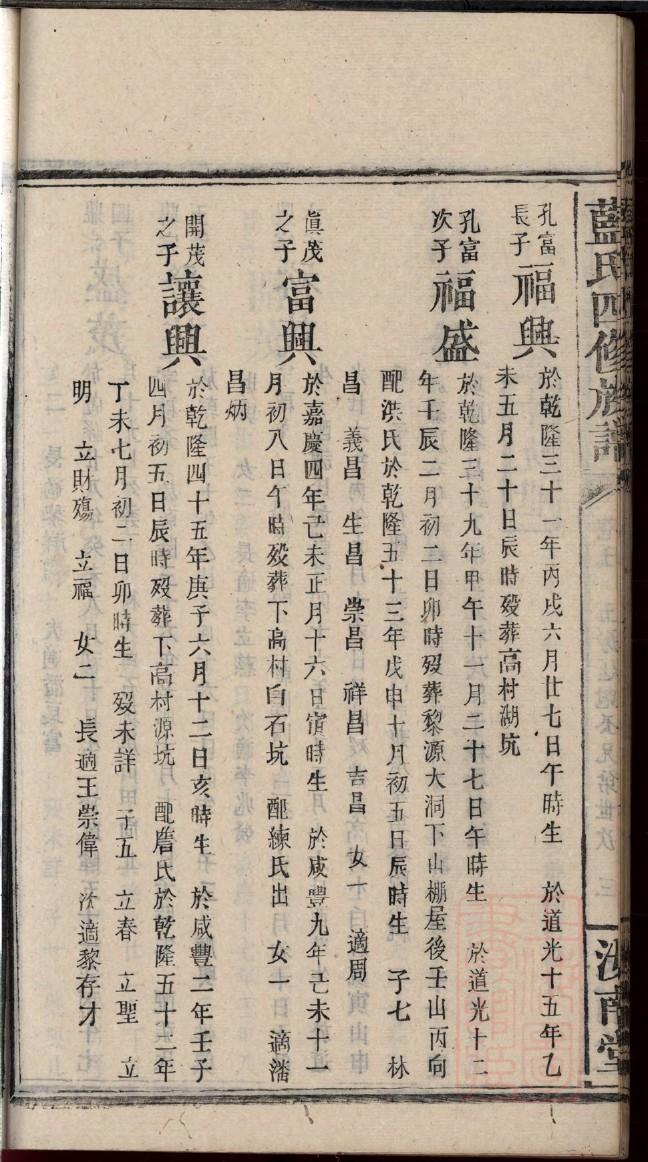 藍氏四修族譜
汝南堂
孔富長子 福興 於乾隆三十一年丙戌六月廿七日午時生 於道光十五年乙
未五月二十日辰時歿葬高村湖坑
孔富次子 福盛 於乾隆三十九年甲午十一月二十七日午時生 於道光十二
年壬辰二月初二日卯時歿葬黎源大洞下山棚屋後壬山丙向
配洪氏於乾隆五十三年戊申十月初五日辰時生 子七 林
昌 義昌 生昌 崇昌 祥昌 吉昌 女一 適周
眞茂之子 富興 於嘉慶四年己未正月十六日寅時生 於咸豐九年己未十一
月初八日午時歿葬下高村白石坑 配練氏出 女一 適潘
昌炳
開茂之子 讓興 於乾隆四十五年庚子六月十二日亥時生 於咸豐二年壬子
四月初五日辰時歿葬下高村源坑 配詹氏於乾隆五十二年
丁未七月初二日卯時生 歿未詳 子五 立春 立聖 立
明 立財殤 立福 女二 長適王崇偉 次適黎存才